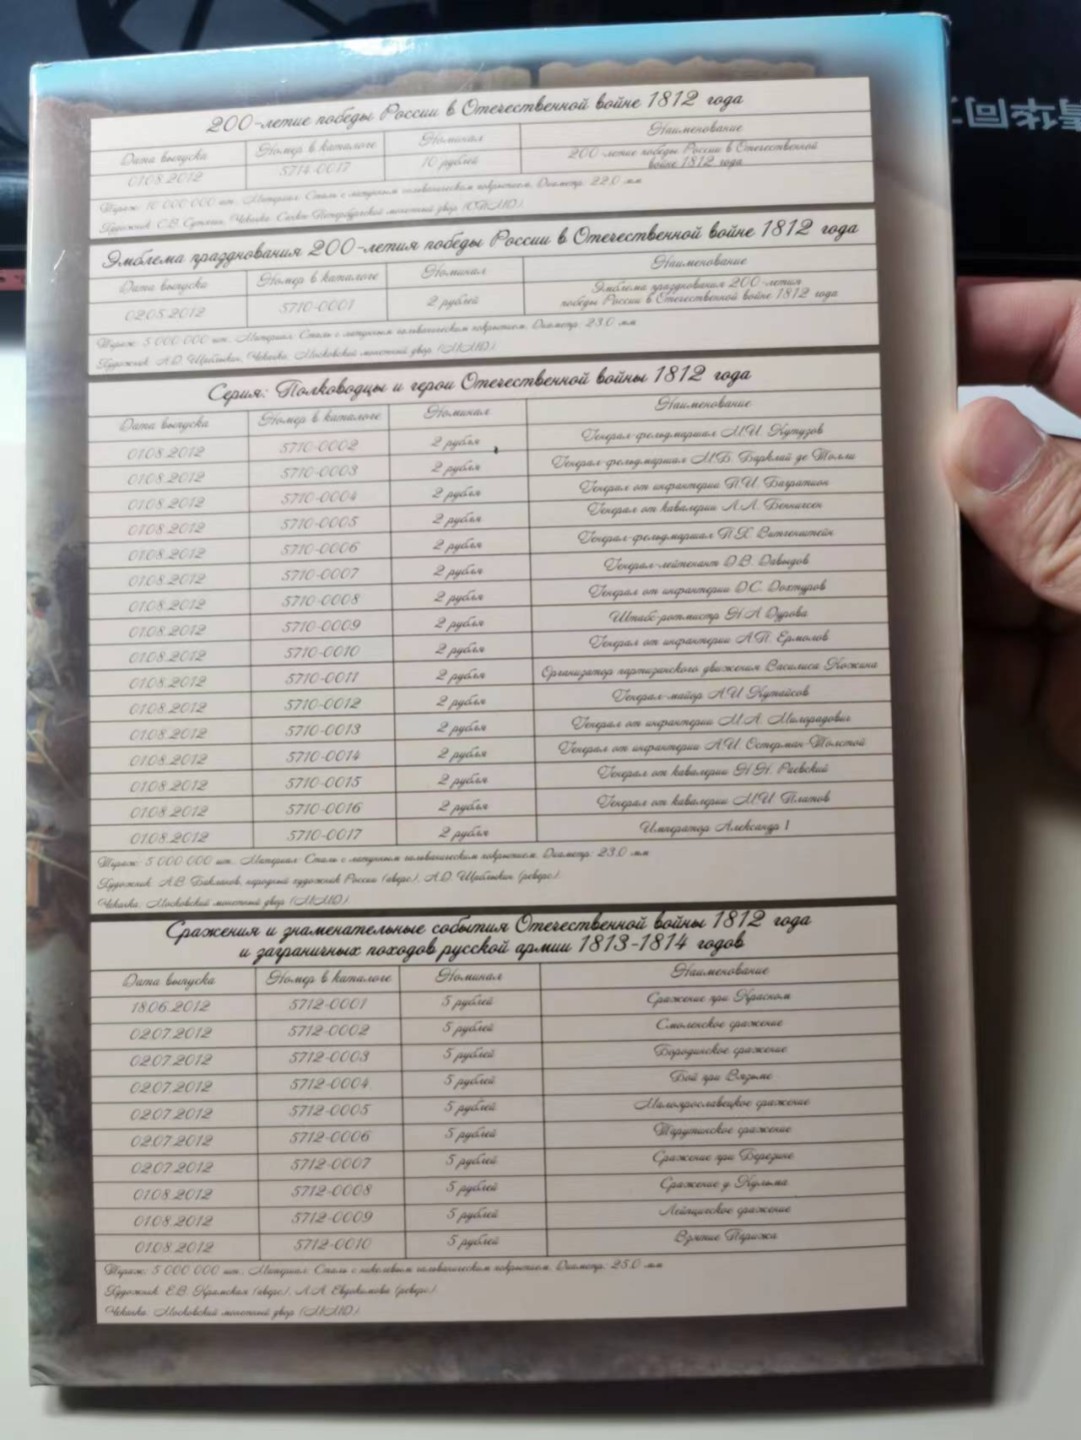 200-летие победы России в Отечественной войне 1812 года
Дата выпуска Номер в каталоге Номинал Наименование
01.08.2012 5714-0017 10 рублей 200-летие победы России в Отечественной
войне 1812 года
Тираж: 10 000 000 шт., Материал: Сталь с латунным гальваническим покрытием, Диаметр: 22,0 мм
Художник: С.В. Сутягин, Чеканка: Санкт-Петербургский монетный двор (СПМД)
Эмблема празднования 200-летия победы России в Отечественной войне 1812 года
Дата выпуска Номер в каталоге Номинал Наименование
02.05.2012 5710-0001 2 рублей Эмблема празднования 200-летия
победы России в Отечественной войне 1812 года
Тираж: 5 000 000 шт., Материал: Сталь с латунным гальваническим покрытием, Диаметр: 23,0 мм
Художник: А.Д. Щаблыкин, Чеканка: Московский монетный двор (ММД)
Серия: Полководцы и герои Отечественной войны 1812 года
Дата выпуска Номер в каталоге Номинал Наименование
01.08.2012 5710-0002 2 рубля Генерал-фельдмаршал М.И. Кутузов
01.08.2012 5710-0003 2 рубля Генерал-фельдмаршал М.Б. Барклай де Толли
01.08.2012 5710-0004 2 рубля Генерал от инфантерии П.И. Багратион
01.08.2012 5710-0005 2 рубля Генерал от кавалерии Л.Л. Беннигсен
01.08.2012 5710-0006 2 рубля Генерал-фельдмаршал П.Х. Витгенштейн
01.08.2012 5710-0007 2 рубля Генерал-лейтенант Д.В. Давыдов
01.08.2012 5710-0008 2 рубля Генерал от инфантерии Д.С. Дохтуров
01.08.2012 5710-0009 2 рубля Штабс-ротмистр Н.А. Дурова
01.08.2012 5710-0010 2 рубля Генерал от инфантерии А.П. Ермолов
01.08.2012 5710-0011 2 рубля Организатор партизанского движения Василиса Кожина
01.08.2012 5710-0012 2 рубля Генерал-майор А.И. Кутайсов
01.08.2012 5710-0013 2 рубля Генерал от инфантерии М.А. Милорадович
01.08.2012 5710-0014 2 рубля Генерал от инфантерии А.И. Остерман-Толстой
01.08.2012 5710-0015 2 рубля Генерал от кавалерии Н.Н. Раевский
01.08.2012 5710-0016 2 рубля Генерал от кавалерии М.И. Платов
01.08.2012 5710-0017 2 рубля Император Александр I
Тираж: 5 000 000 шт., Материал: Сталь с латунным гальваническим покрытием, Диаметр: 23,0 мм
Художник: А.В. Бакланов, народный художник России (аверс), А.Д. Щаблыкин (реверс)
Чеканка: Московский монетный двор (ММД)
Сражения и знаменательные события Отечественной войны 1812 года
и заграничных походов русской армии 1813-1814 годов
Дата выпуска Номер в каталоге Номинал Наименование
18.06.2012 5712-0001 5 рублей Сражение при Красном
02.07.2012 5712-0002 5 рублей Смоленское сражение
02.07.2012 5712-0003 5 рублей Бородинское сражение
02.07.2012 5712-0004 5 рублей Бой при Вязьме
02.07.2012 5712-0005 5 рублей Малоярославецкое сражение
02.07.2012 5712-0006 5 рублей Тарутинское сражение
02.07.2012 5712-0007 5 рублей Сражение при Березине
01.08.2012 5712-0008 5 рублей Сражение у Кульма
01.08.2012 5712-0009 5 рублей Лейпцигское сражение
01.08.2012 5712-0010 5 рублей Взятие Парижа
Тираж: 5 000 000 шт., Материал: Сталь с никелевым гальваническим покрытием, Диаметр: 25,0 мм
Художник: Е.В. Крамская (аверс), Л.А. Евдокимова (реверс)
Чеканка: Московский монетный двор (ММД)